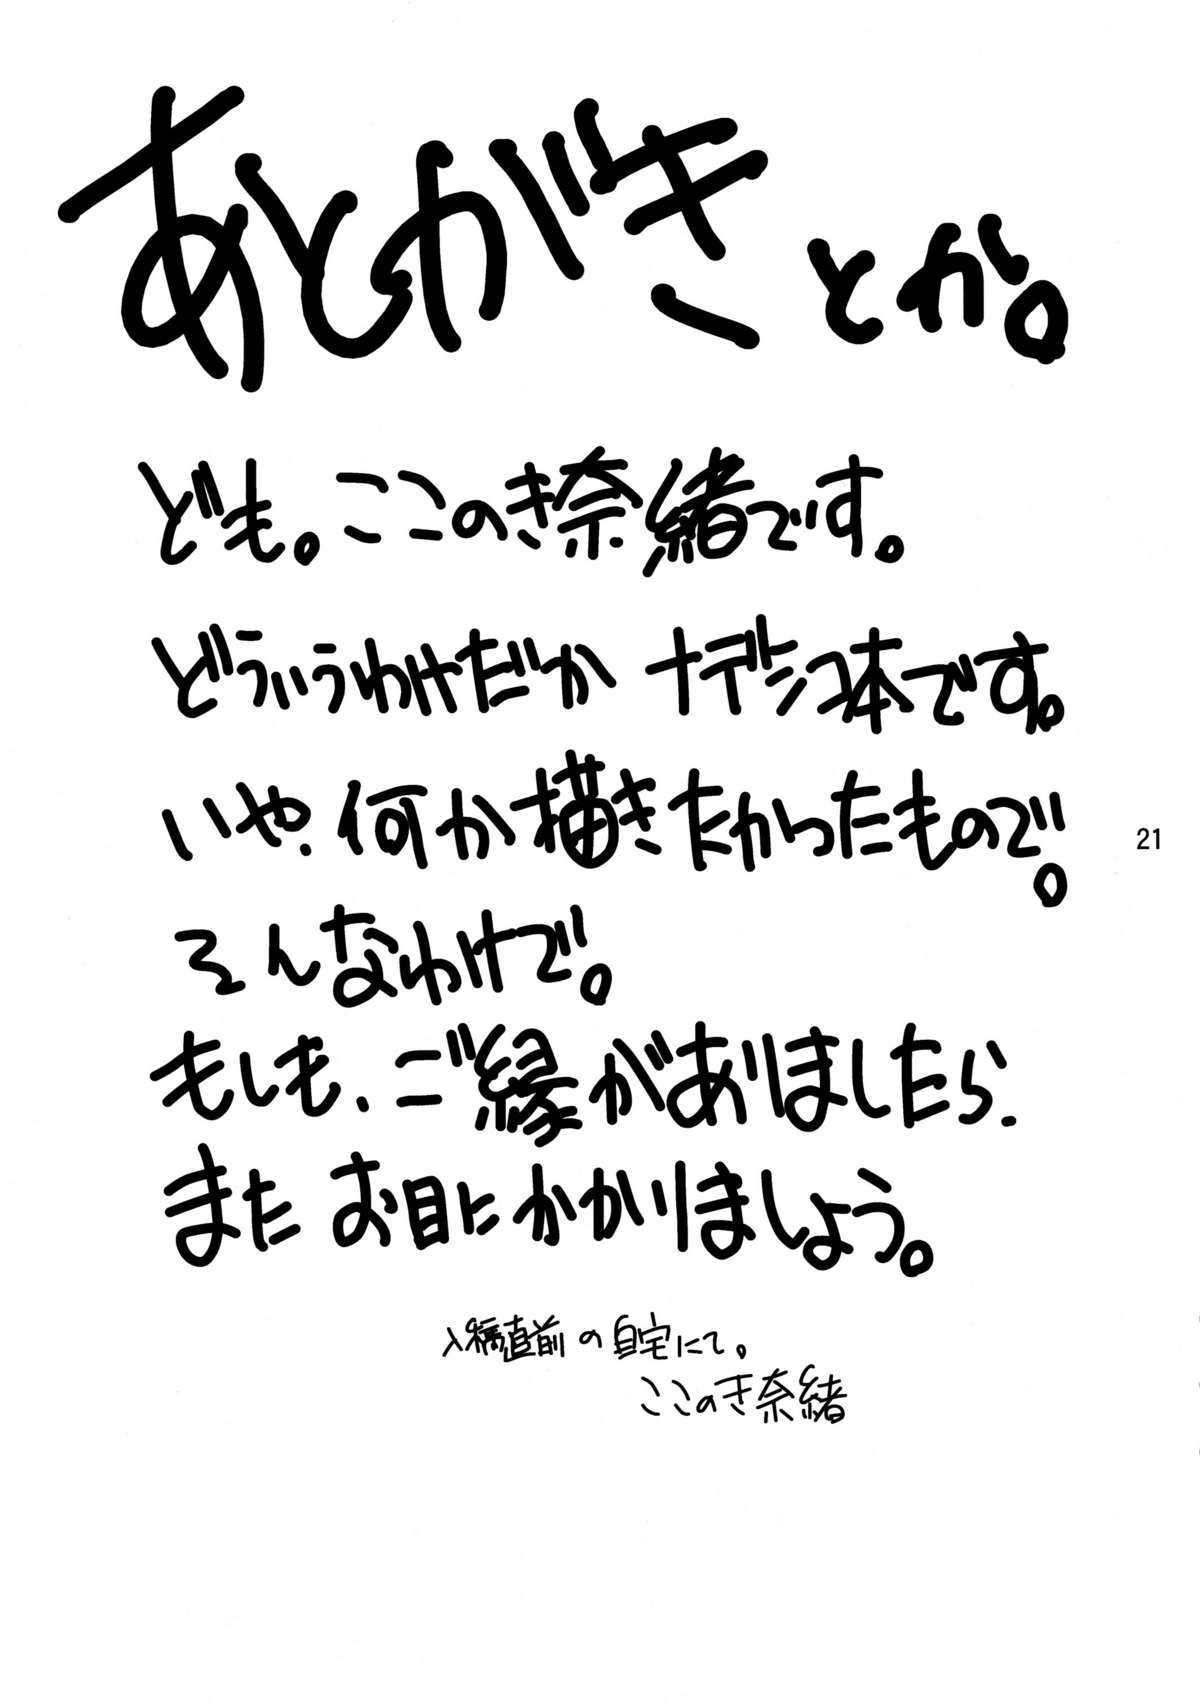 あとがきとか。
ども。ここのき奈緒です。
どういうわけだか ナデシコ本です。
いや、何か描きたかったもので。
21
そんなわけで。
もしも、ご縁がありましたら、
また お目にかかりましょう。
入稿直前の自宅にて。
ここのき奈緒